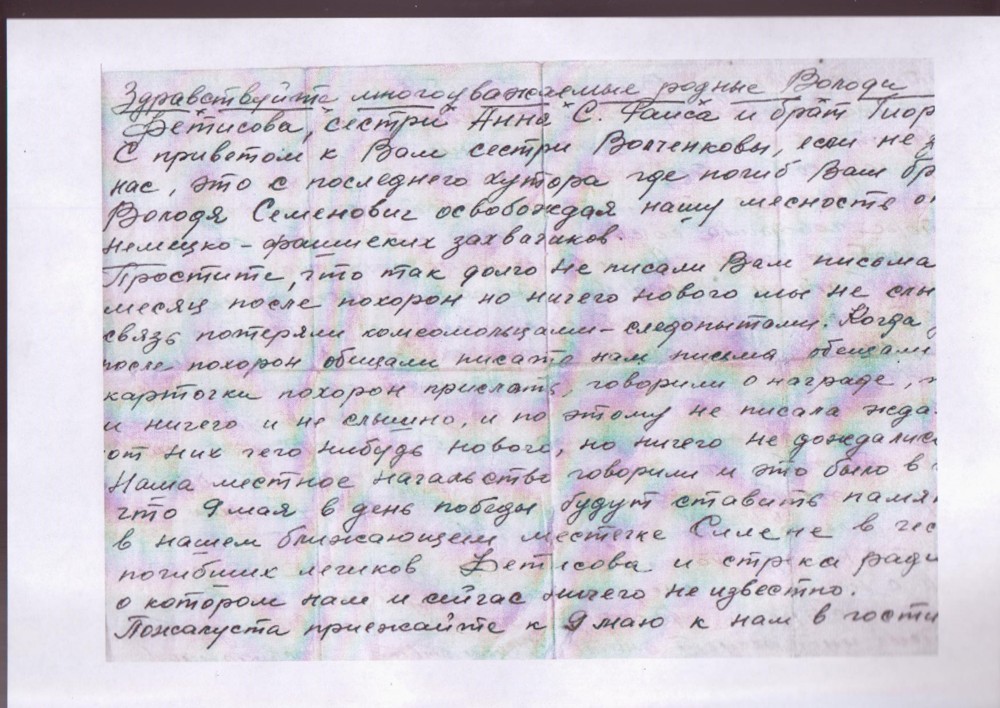 Здравствуйте многоуважаемые родные Володи
Фетисова, сестри Анна С. Фаиса и брат Геор
С приветом к Вам сестри Волченковы, если не
нас, это с последнего хутора где погиб Ваш бр
Володя Семенович освобождая нашу месность о
немецко-фашиских захватчиков.
Простите, что так долго не писали Вам письма
месяц после похорон но ничего нового мы не слы
связь потеряли комсомольцами-следопытами. Когда
после похорон обещали писать нам письма обещали
карточки похорон прислать, говорили о награде,
и ничего и не слышно, и по этому не писала жда
от них чего нибудь нового, но ничего не дождалис
Наша местное начальство говорили и это было в
что 9 мая в день победы будут ставить памя
в нашем ближающем местечке Силене в чес
погибших летчиков Фетисова и стрелка ради
о котором нам и сейчас ничего не известно.
Пожалуста приежайте к 9 маю к нам в гости